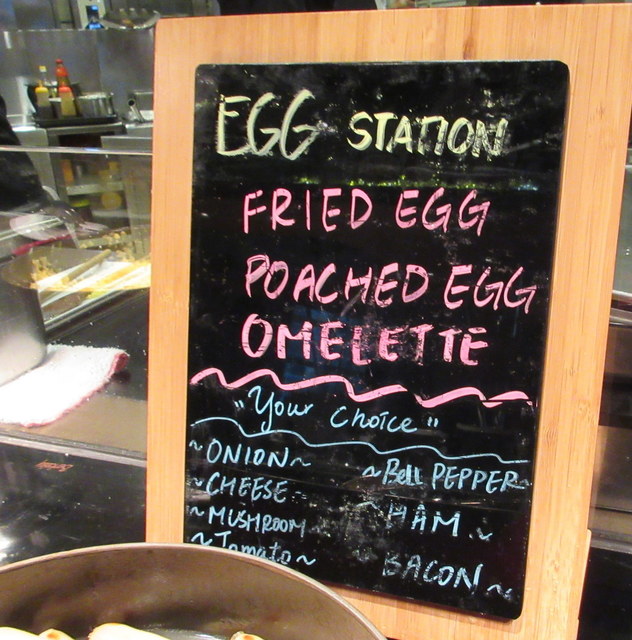 EGG STATION
FRIED EGG
POACHED EGG
OMELETTE
"Your Choice"
~ONION~
~CHEESE
~MUSHROOM
~Tomato~
~Bell PEPPER~
~HAM~
BACON~